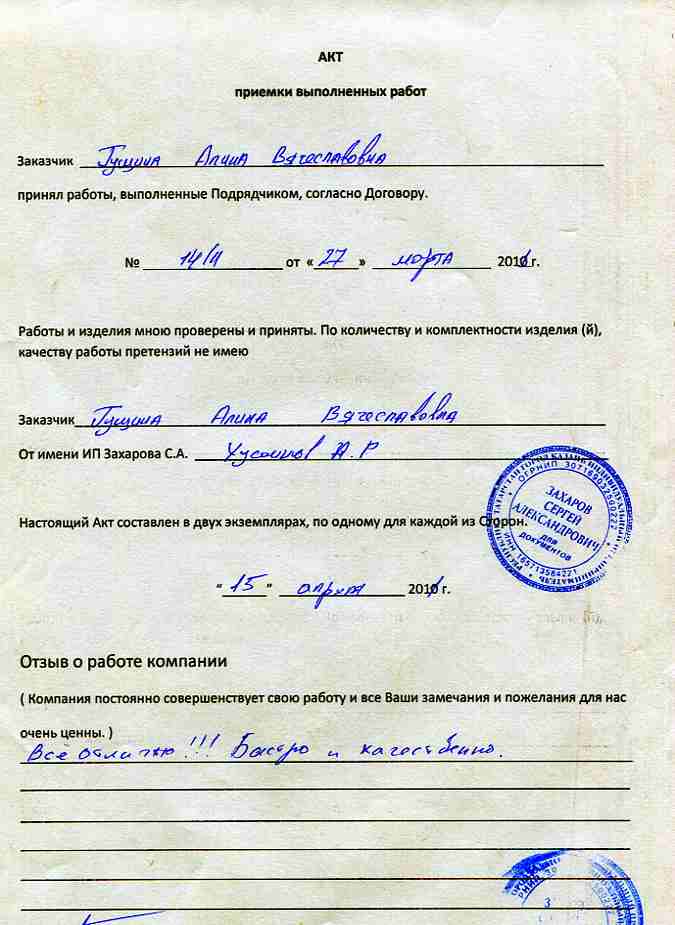 АКТ
приемки выполненных работ
Заказчик Гущина Алина Вячеславовна
принял работы, выполненные Подрядчиком, согласно Договору.
№ 14/4 от «27» марта 2011г.
Работы и изделия мною проверены и приняты. По количеству и комплектности изделия (й),
качеству работы претензий не имею
Заказчик Гущина Алина Вячеславовна
От имени ИП Захарова С.А. Хусаинов А.Р
Настоящий Акт составлен в двух экземплярах, по одному для каждой из Сторон.
ЗАХАРОВ
СЕРГЕЙ
АЛЕКСАНДРОВИЧ
ДЛЯ
ДОКУМЕНТОВ
"15" апреля 2011 г.
Отзыв о работе компании
( Компания постоянно совершенствует свою работу и все Ваши замечания и пожелания для нас
очень ценны. )
Всё отлично!!! Быстро и качественно.